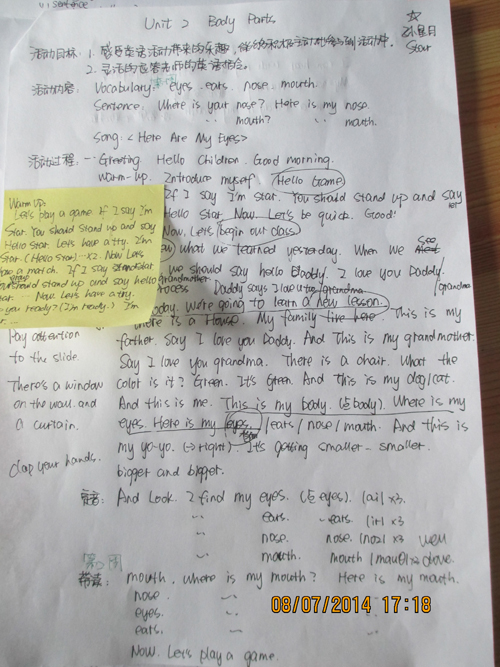 Sentence
Unit 2 Body Parts
☆
Star
活动目标: 1. 感受英语活动带来的乐趣, 能够积极主动地参与到活动中。
2. 灵活的回答老师的英语指令。
活动内容: Vocabulary: eyes. ears. nose. mouth.
Sentence: Where is your nose? Here is my nose.
〃 mouth? 〃 mouth.
Song: <Here Are My Eyes>
活动过程: 一. Greeting Hello Children. Good morning.
Warm-up. Introduce myself (Hello Game)
If I say I'm star. You should stand up and say
Hello Star. Now. Let's be quick. Good!
Now. Let's begin our class
what we learned yesterday. When we see
we should say hello Daddy. I love you Daddy.
Daddy says I love u too grandmother/grandma
today. We're going to learn a new lesson.
There is a House. My family live here. This is my
father. Say I love you Daddy. And This is my grandmother.
Say I love you grandma. There is a chair. What the
color is it? Green. It's Green. And this is my dog/cat.
And this is me. This is my body. (点body). Where is my
eyes. Here is my eyes. /ears / nose / mouth. And this is
my yo-yo. (→right). It's getting smaller - smaller.
bigger and bigger.
Warm up:
Let's play a game If I say I'm
Star. You should Stand up and say
Hello Star. Let's have a try. I'm
Star. (Hello Star) -X2. Now Let's
have a match. If I say
should stand up and say hello
star. ... Now. Let's have a try.
you ready? (I'm ready.) I'm
Pay attention
to the slide.
There's a window
on the wall. and
a curtain.
clap your hands.
And Look. I find my eyes. (点eyes). |ai| x3
〃 ears. 〃 ears. |iə| x3
〃 nose. nose. |noz| x3
〃 mouth. mouth |mauθ| x3
带读: mouth. where is my mouth? Here is my mouth.
nose 〃 〃
eyes. 〃
ears. 〃
Now. Let's play a game.
08/07/2014 17:18